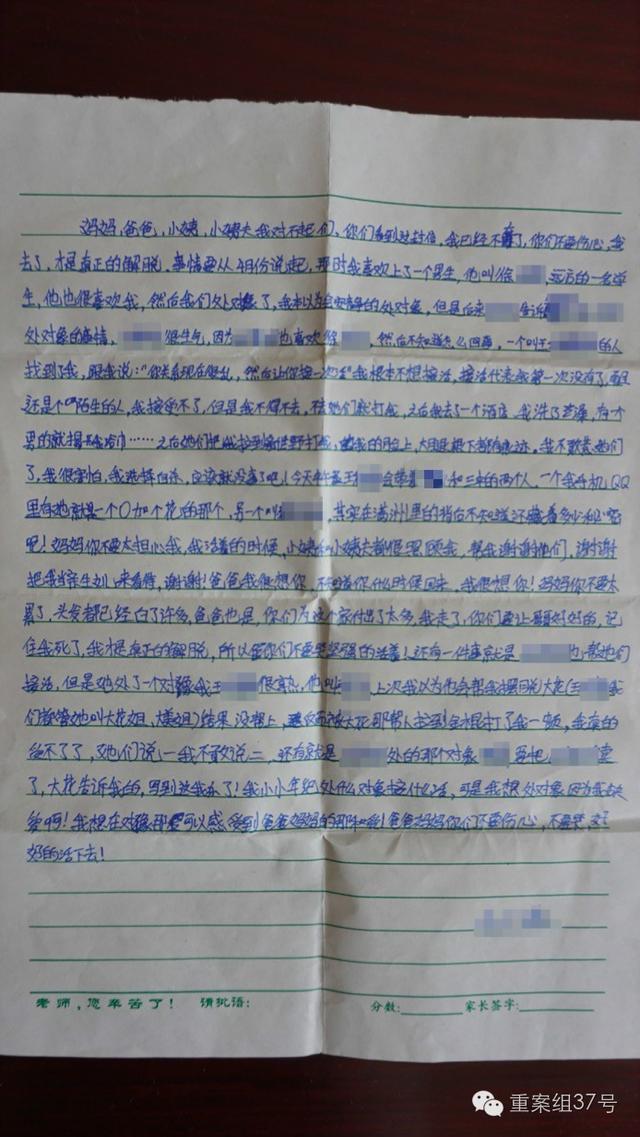 妈妈,爸爸,小姨,小姨夫我对不起们,你们看到这封信,我已经不在了,你们不要伤心,我
去了,才是真正的解脱。事情要从4月份说起,那时我喜欢上了一个男生,他叫徐 远方的一名学
生,他也很喜欢我,然后我们久处对像了,我本以为会安静的处对象,但是后来 告诉
处对像的事情, 很生气,因为 也喜欢徐 ,然后不知道怎么回事,一个叫王 的人
找到了我,跟我说:“你关系现在很乱,然后让你接一次活”我根本不想接活,接活代表我第一次没有了,而且
还是个陌生的人,我接受不了,但是我不得不去,不去她们就打我,之后我去了一个酒店,我洗了英澡,有个
男的就 浴巾……之后她们把我拉到 野打我, 我的脸上,大腿根下都有痕迹,我不敢 她们
了,我很害怕,我选择自杀,应该就没事了吧!今天中午 王 会带着 和三末的两个人,一个我手机QQ
里有她就是一个〇加个花的那个,另一个叫 ,其实在满洲里的背后不知道还藏着多少秘密
吧!妈妈你不要太担心我,我活着的时候,小姨和小姨夫都很照顾我,帮我谢谢他们,谢谢
把我当亲生 来看待,谢谢!爸爸我很想你,不知道你什么时候回来,我很想你!妈妈你不要太
累了,头发都已经白了许多,爸爸也是,你们为这个家付出了太多,我走了,你们要让哥哥好好的,记
住我死了,我才是真正的解脱,所以 你们不要 坚强的活着!还有一件事就是 也 帮她们
接活,但是她处了一个对像我王 很高兴,他叫 上次我以为他会帮我摆脱大花(王 我
们都管她叫大花姐,大 姐)结果没想上, 反而 大花那帮人找到 打了我一顿,我真的
受不了了,又她们说(一我不敢说二,还有就是 处的那个对象 要把 卖
了,大花告诉我的,写到这我 了!我小小年纪处什么对像接什么活,可是我想处对象因为我缺
爱啊!我想在对像那 可以感受到爸爸妈妈的 !爸爸妈妈你们不要伤心,不要哭,好
好的活下去!
老师,您辛苦了! 请批语: 分数: 家长签字:
重案组37号